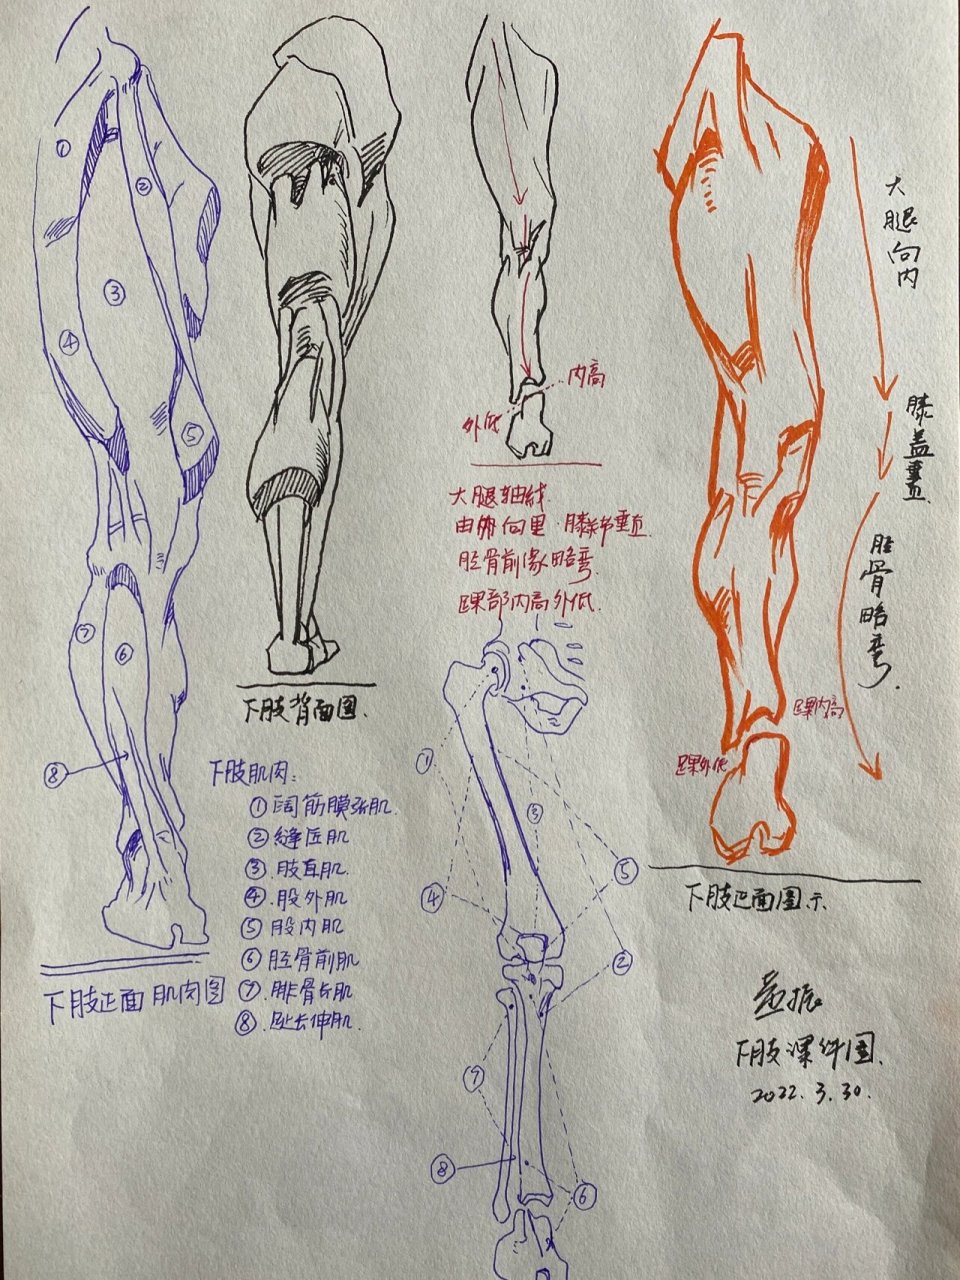 ①
②
③
④
⑤
⑥
⑦
⑧
下肢正面肌肉图
下肢背面图.
下肢肌肉:
①阔筋膜张肌.
②缝匠肌
③.股直肌.
④.股外肌
⑤股内肌
⑥胫骨前肌
⑦.腓骨长肌
⑧.趾长伸肌
内高
外低
大腿轴线.
由外向里.膝部垂直.
胫骨前缘略弯.
踝部内高外低.
①
③
④
⑤
②
⑦
⑧
⑥
大腿向内
膝盖垂直.
胫骨略弯.
踝内高
踝外低
下肢正面图示.
振
下肢课件图.
2022.3.30.